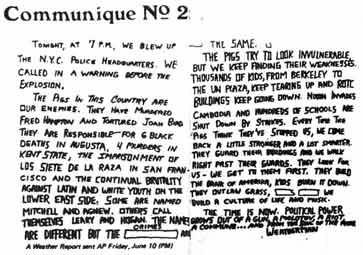 Communique No 2
TONIGHT, AT 7 P.M., WE BLEW UP
THE N.Y.C. POLICE HEADQUARTERS. WE
CALLED IN A WARNING BEFORE THE
EXPLOSION.
THE PIGS IN THIS COUNTRY ARE
OUR ENEMIES. THEY HAVE MURDERED
FRED HAMPTON AND TORTURED JOAN BIRD
THEY ARE RESPONSIBLE FOR 6 BLACK
DEATHS IN AUGUSTA, 4 MURDERS IN
KENT STATE, THE IMPRISONMENT OF
LOS SIETE DE LA RAZA IN SAN FRAN-
CISCO AND THE CONTINUAL BRUTALITY
AGAINST LATIN AND WHITE YOUTH ON THE
LOWER EAST SIDE. SOME ARE NAMED
MITCHELL AND AGNEW. OTHERS CALL
THEMSELVES LEARY AND HOGAN. THE NAMES
ARE DIFFERENT BUT THE CRIMES ARE
THE SAME.
THE PIGS TRY TO LOOK INVULNERABLE,
BUT WE KEEP FINDING THEIR WEAKNESSES.
THOUSANDS OF KIDS, FROM BERKELEY TO
THE UN PLAZA, KEEP TEARING UP AND ROTC
BUILDINGS KEEP GOING DOWN. NIXON INVADES
CAMBODIA AND HUNDREDS OF SCHOOLS ARE
SHUT DOWN BY STRIKES. EVERY TIME THE
PIGS THINK THEY'VE STOPPED US, WE COME
BACK A LITTLE STRONGER AND A LOT SMARTER.
THEY GUARD THEIR BUILDINGS AND WE WALK
RIGHT PAST THEIR GUARDS. THEY LOOK FOR
US - WE GET TO THEM FIRST. THEY BUILD
THE BANK OF AMERICA, KIDS BURN IT DOWN.
THEY OUTLAW GRASS, WE
BUILD A CULTURE OF LIFE AND MUSIC.
THE TIME IS NOW. POLITICAL POWER
GROWS OUT OF A GUN, A MOLOTOV, A RIOT
A COMMUNE... AND FROM THE SOUL OF THE PEOPLE
WEATHERMAN
A Weather Report sent AP Friday, June 10 (PM)